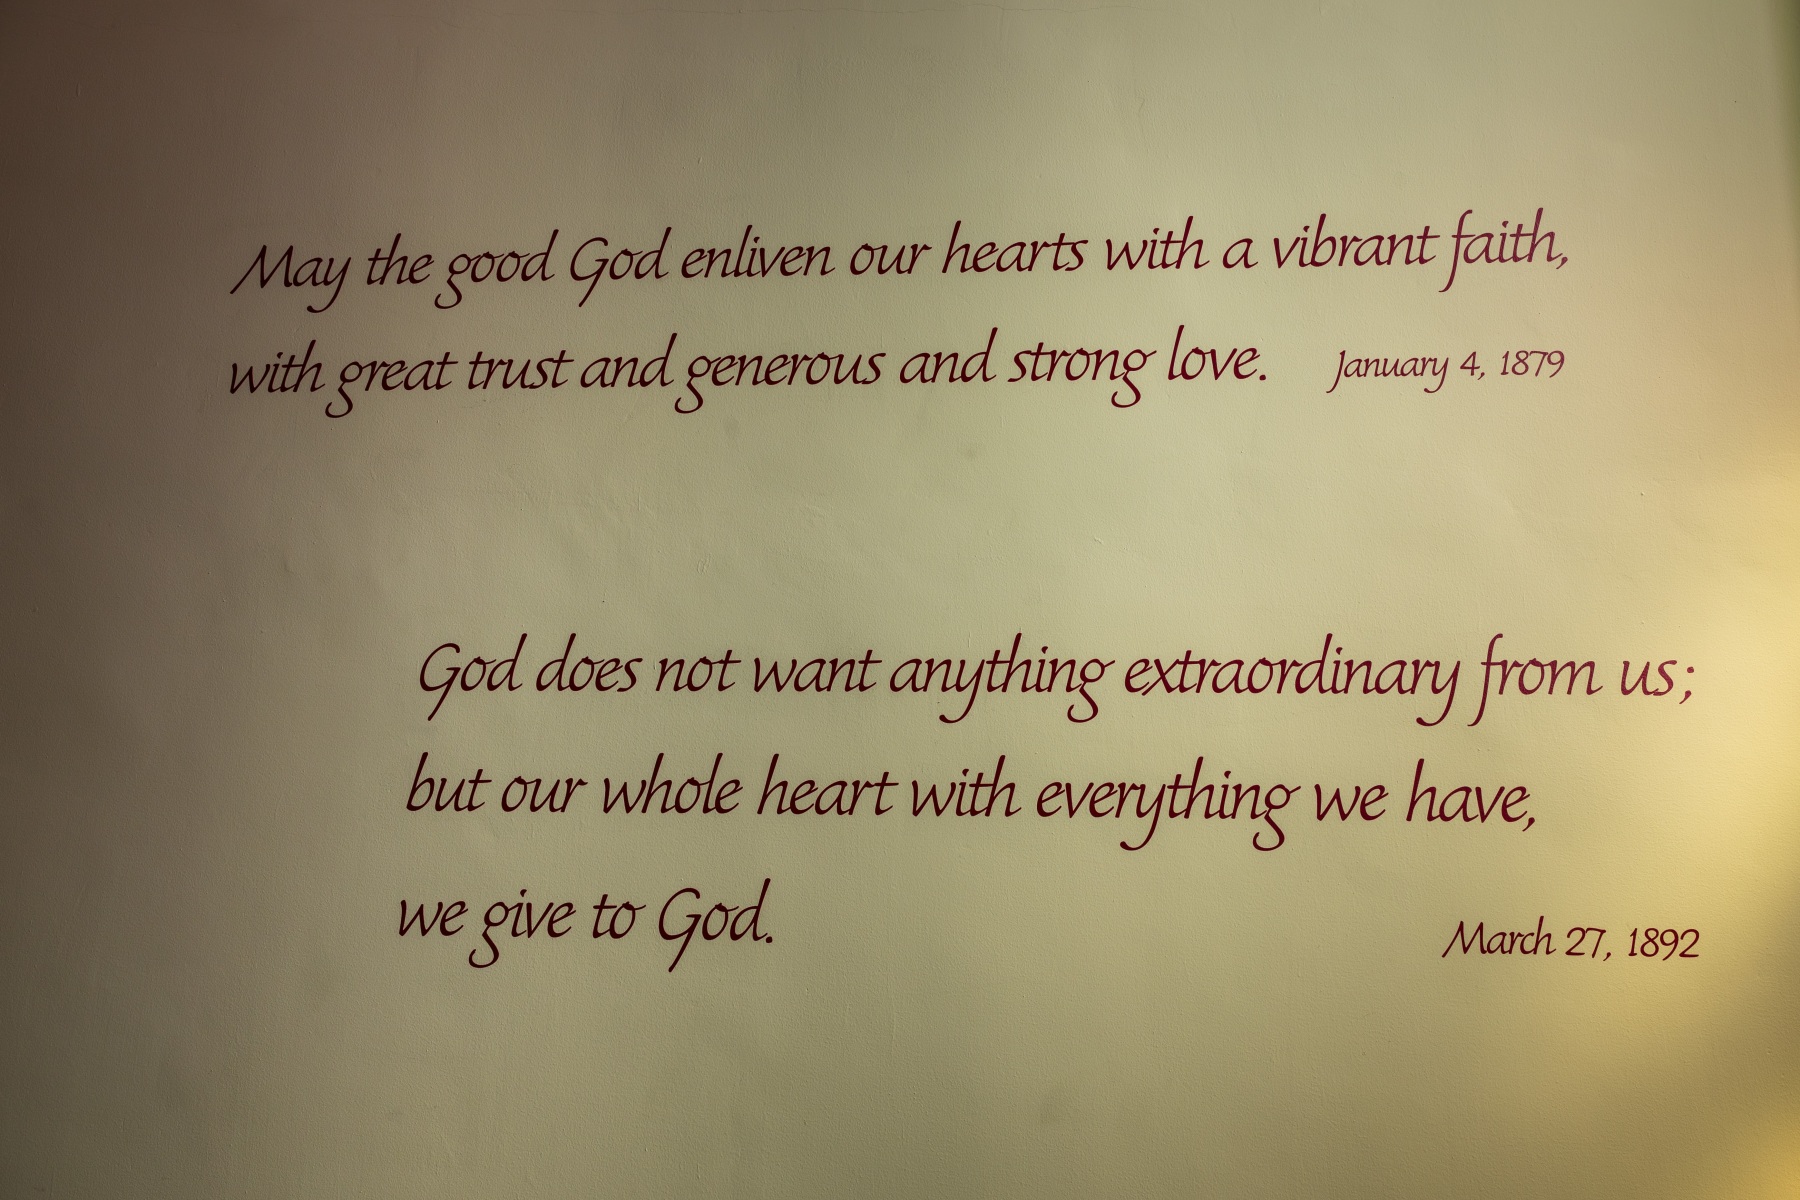 May the good God enliven our hearts with a vibrant faith,
with great trust and generous and strong love. January 4, 1879
God does not want anything extraordinary from us;
but our whole heart with everything we have,
we give to God.
March 27, 1892